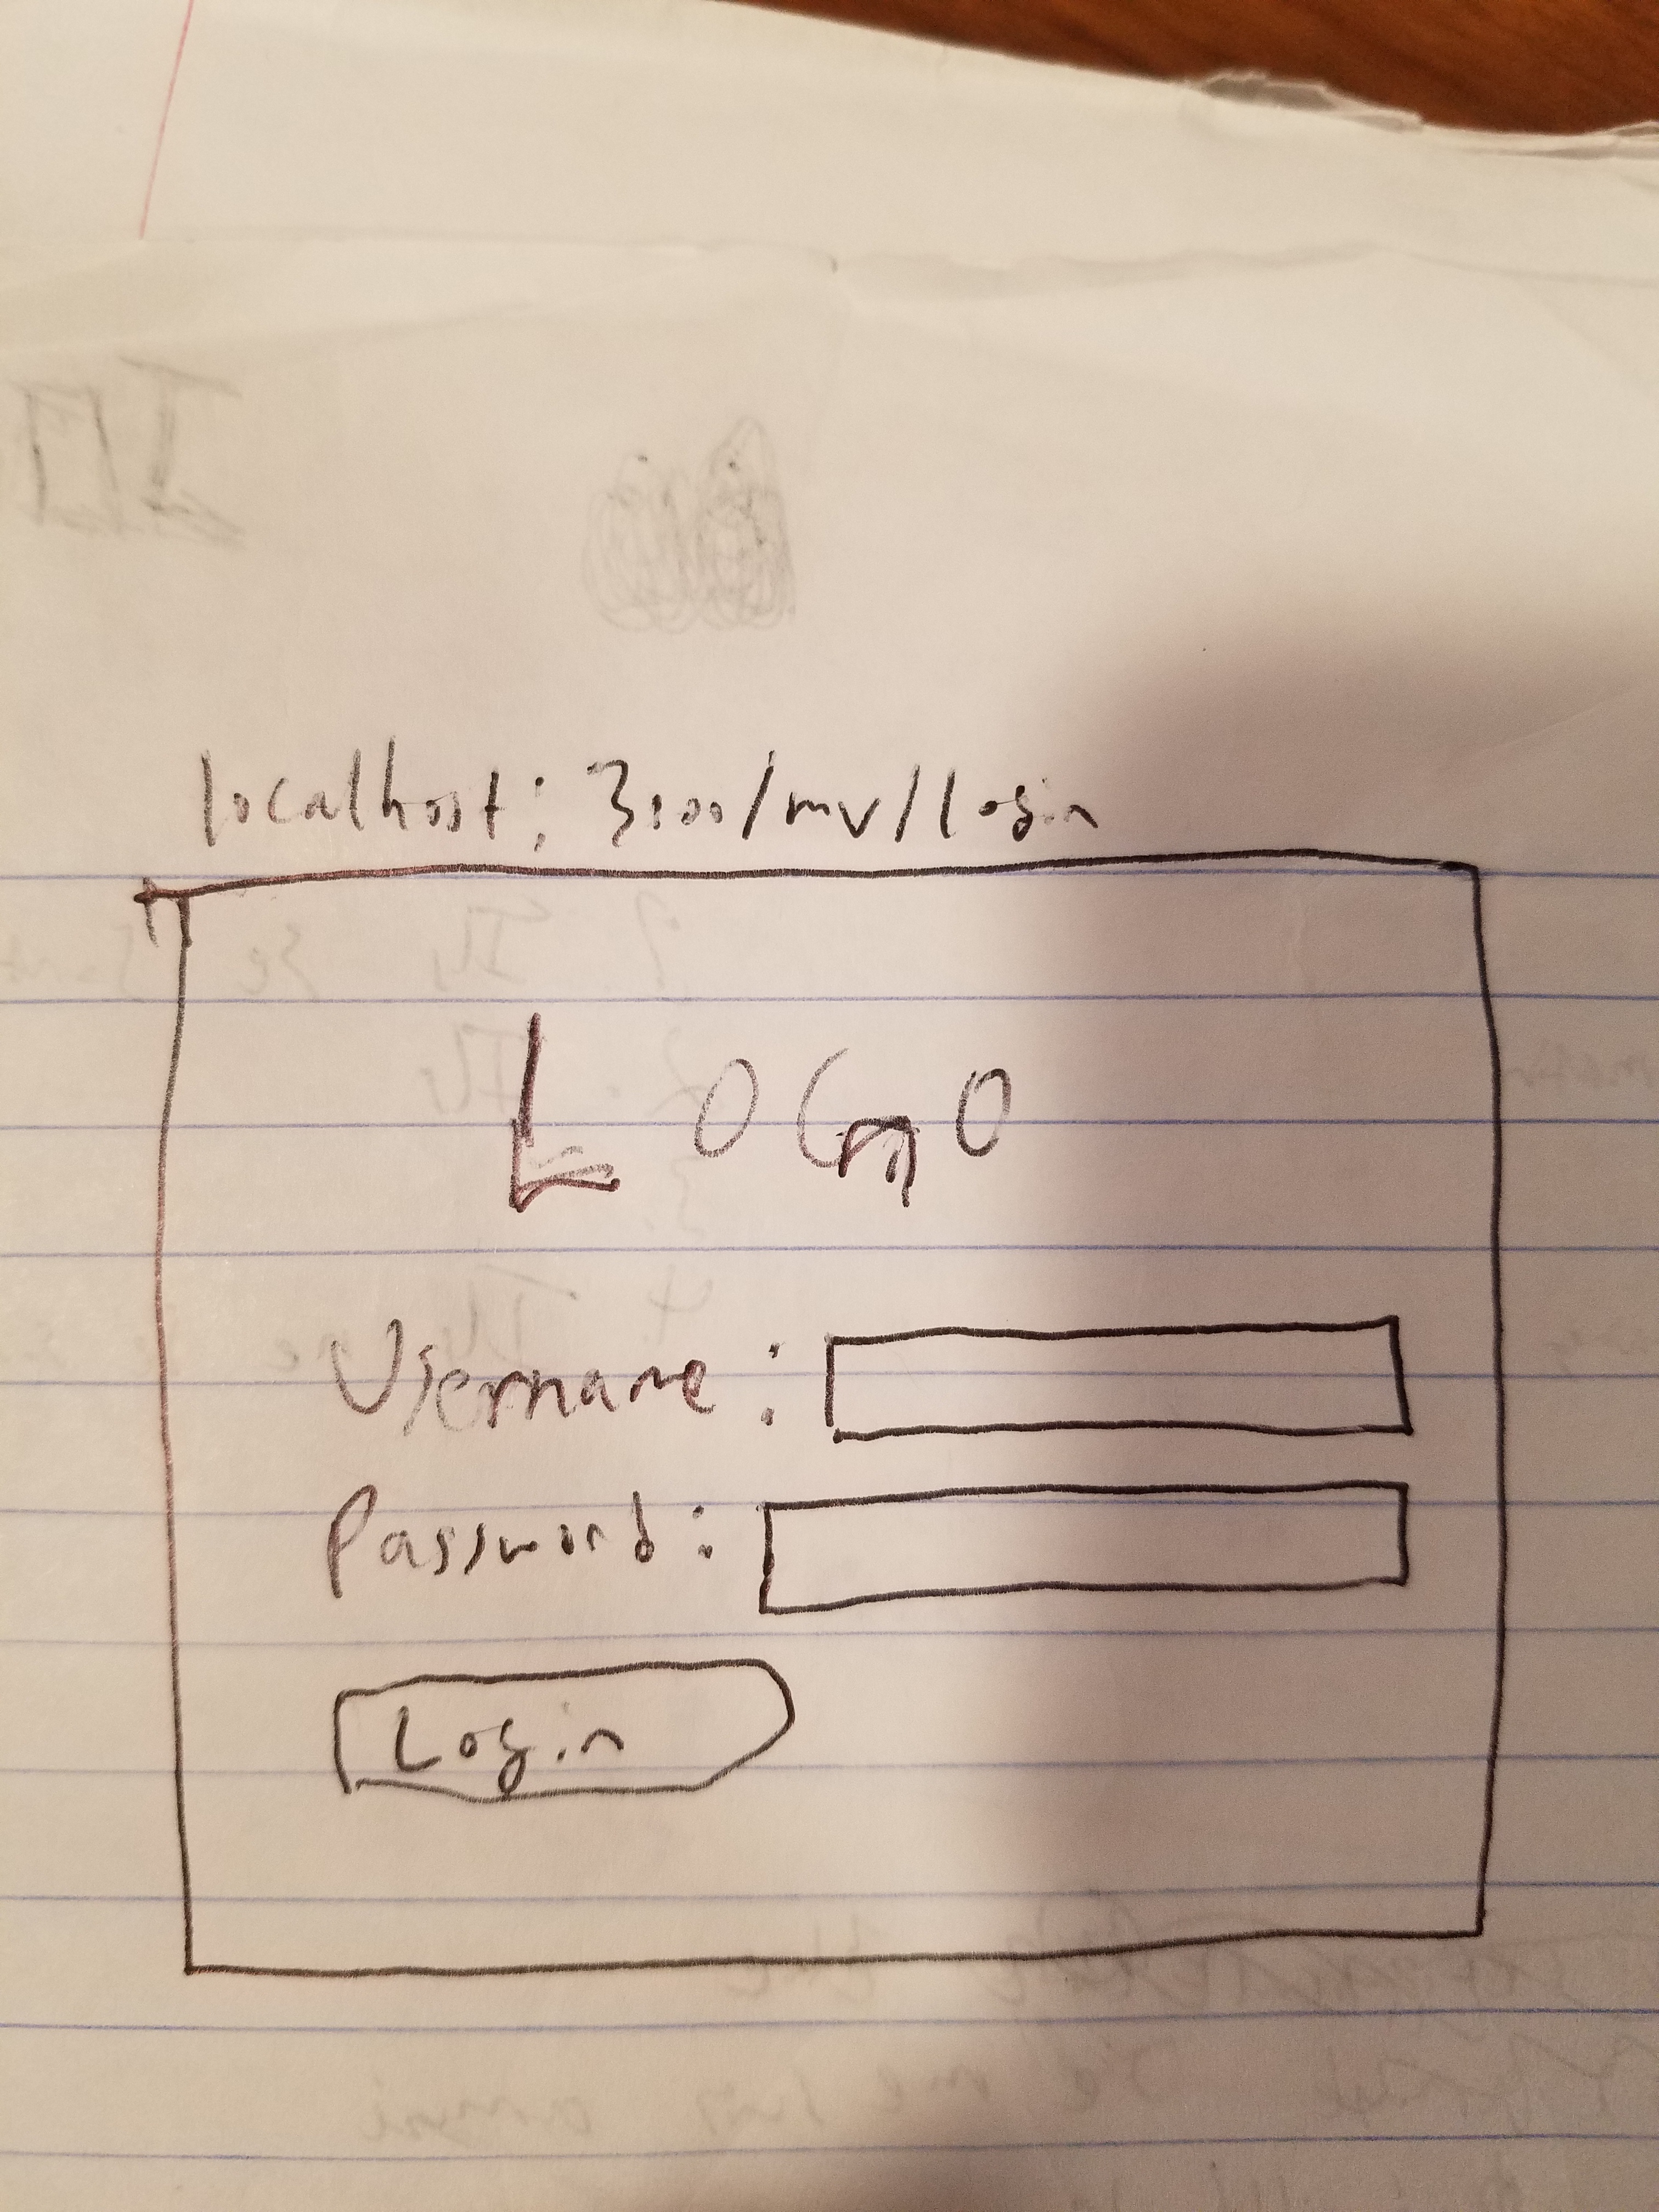 localhost: 3000/mv/login
LOGO
Username:
Password:
Login